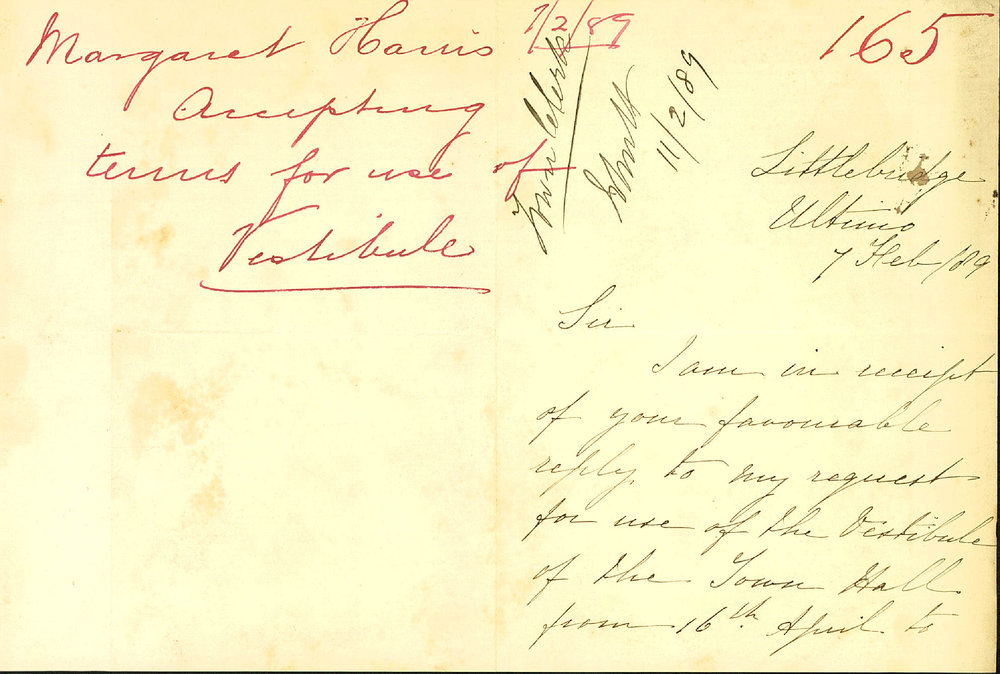 Margaret Harris 7/2/89
Accepting
terms for use of
Vestibule
Town Clerk
11/2/89
165
Littlebridge
Ultimo
7 Feb/89
Sir
I am in receipt
of your favourable
reply to my request
for use of the Vestibule
of the Town Hall
from 16th April to